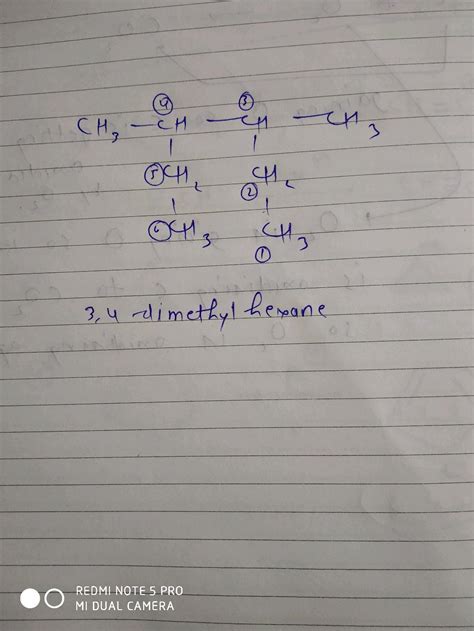 ④ ③
CH₃ — CH — CH — CH₃
⑤ CH₂ ② CH₂
⑥ CH₃ CH₃
①
3,4 dimethyl hexane
REDMI NOTE 5 PRO
MI DUAL CAMERA